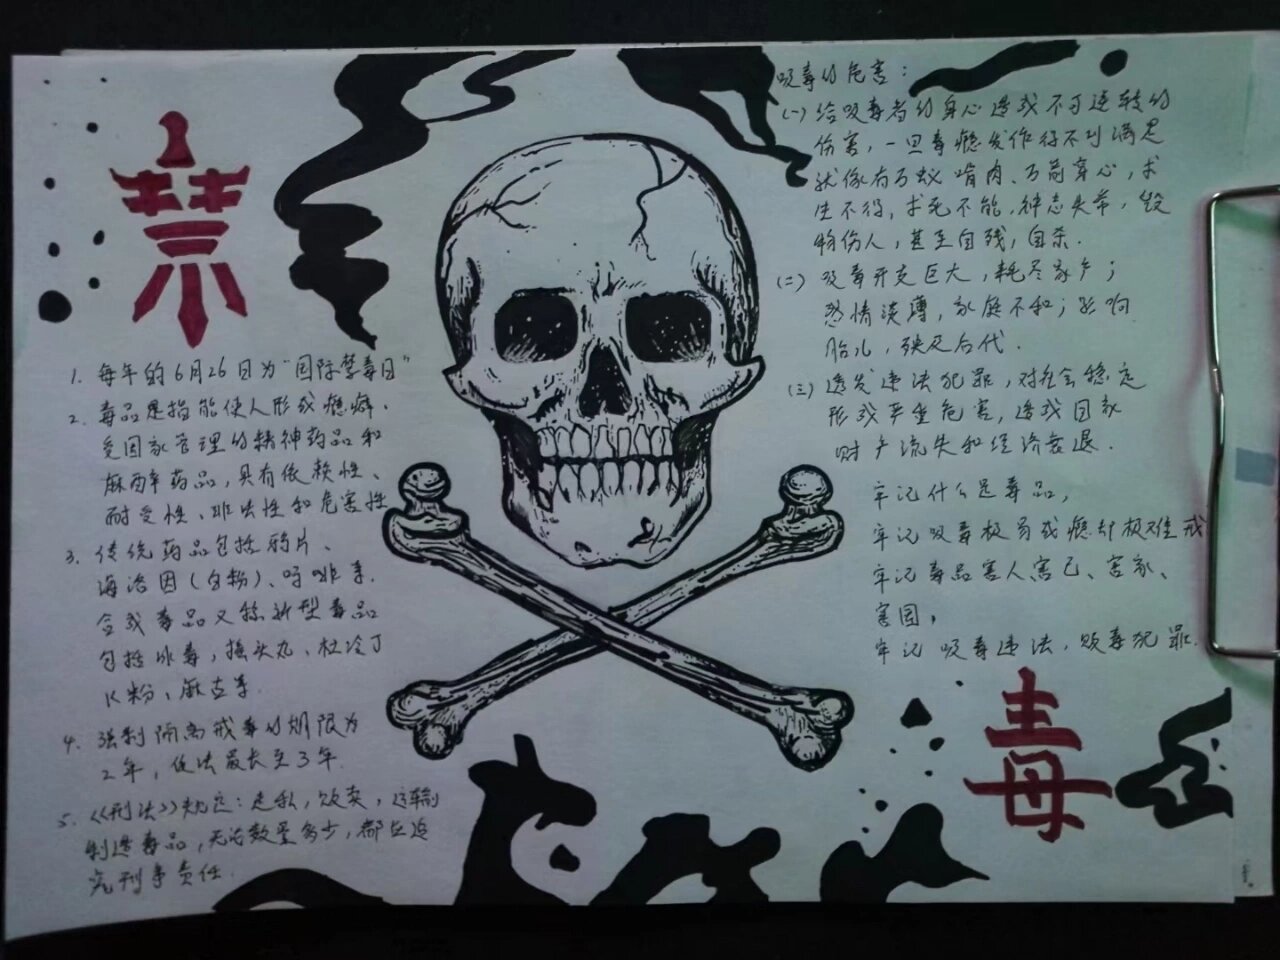 禁
1. 每年的6月26日为“国际禁毒日”
2. 毒品是指能使人形成瘾癖、
受国家管理的精神药品和
麻醉药品，具有依赖性、
耐受性、非法性和危害性
3. 传统药品包括鸦片、
海洛因(白粉)、吗啡等.
合成毒品又称新型毒品
包括冰毒，摇头丸、杜冷丁
K粉、麻古等.
4. 强制隔离戒毒的期限为
2年，依法最长至3年.
5. 《刑法》规定：走私，贩卖，运输
制造毒品，无论数量多少，都应追
究刑事责任.
吸毒的危害：
(一) 给吸毒者的身心造成不可逆转的
伤害，一旦毒瘾发作得不到满足
就像有万蚁啃肉、万箭穿心，求
生不得，求死不能，神志失常，毁
物伤人，甚至自残，自杀.
(二) 吸毒开支巨大，耗尽家产；
感情淡薄，家庭不和；影响
胎儿，殃及后代.
(三) 诱发违法犯罪，对社会稳定
形成严重危害，造成国家
财产流失和经济衰退.
牢记什么是毒品，
牢记吸毒极易成瘾却极难戒
牢记毒品害人害己、害家、
害国，
牢记吸毒违法，贩毒犯罪.
毒